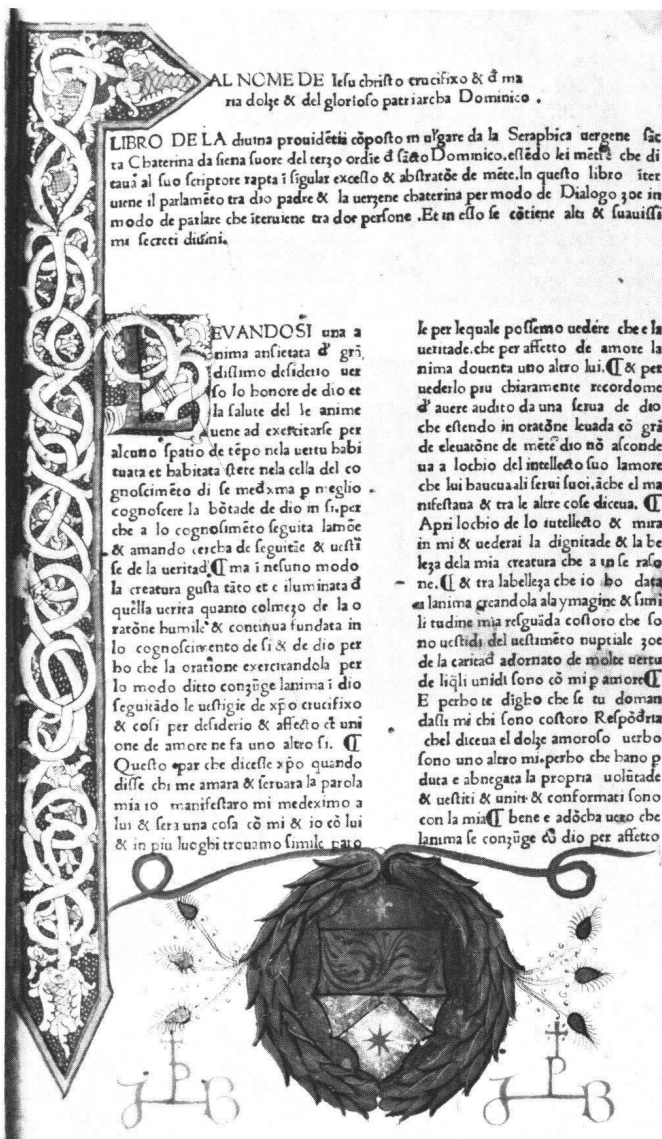 AL NOME DE Iesu christo crucifixo & đ ma
ria dolʒe & del glorioso patriarcha Dominico .
LIBRO DE LA diuina prouidētia cōposto in ulgare da la Seraphica uergene sāc
ta Chaterina da siena suore del terʒo ordīe đ sācto Dominico.essēdo lei mētre che di
taua al suo scriptore rapta ī sigular excesso & abstratōe de mēte.In questo libro īter
uiene il parlamēto tra dio padre & la uerʒene chaterina per modo de Dialogo ʒoe in
modo de parlare che īteruiene tra doe persone .Et in esso se cōtiene alti & suauissi
mi secreti diuini.
LEVANDOSI una a
nima ansietata đ grā
dissimo desiderio uer
so lo honore de dio et
la salute del le anime
uene ad exercitarse per
alcuno spatio de tēpo nela uertu habi
tuata et habitata stete nela cella del co
gnoscimēto di se medxma p meglio
cognoscere la bōtade de dio in si.per
che a lo cognosimēto seguita lamōe
& amando cercha de seguitāe & uestī
se de la ueritad ¶ ma ī nesuno modo
la creatura gusta tāto et e iluminata đ
quella uerita quanto colmeʒo de la o
ratōne humile & continua fundata in
lo cognoscimento de si & de dio per
ho che la oratione exercitandola per
lo modo ditto conʒūge lanima ī dio
seguitādo le uestigie de xp̄o crucifixo
& cosi per desiderio & affecto et uni
one de amore ne fa uno altro si. ¶
Questo par che dicesse xp̄o quando
disse chi me amara & seruara la parola
mia io manifestaro mi medeximo a
lui & sera una cosa cō mi & io cō lui
& in piu luoghi trouamo simile paro
le per lequale possemo uedere che e la
ueritade.che per affetto de amore la
nima douenta uno altro lui. ¶ & per
uederlo piu chiaramente recordome
đ auere audito da una serua de dio
che essendo in oratōne leuada cō grā
de eleuatōne de mēte dio nō asconde
ua a lochio del intellecto suo lamore
che lui haueua ali serui suoi.āche el ma
nifestaua & tra le altre cose diceua. ¶
Apri lochio de lo intellecto & mira
in mi & uederai la dignitade & la be
leʒa dela mia creatura che a in se raso
ne. ¶ & tra la belleʒa che io ho data
a lanima creandola ala ymagine & simi
li tudine mia resguāda costoro che so
no uestidi del uestimēto nuptiale ʒoe
de la caritad adornato de molte uertu
de liq̄li unidi sono cō mi p amore ¶
E perho te digho che se tu doman
dassi mi chi sono costoro Respōdria
chel diceua el dolʒe amoroso uerbo
sono uno altro mi.perho che hano p
duta e abnegata la propria uolūtade
& uestiti & uniti & conformati sono
con la mia ¶ bene e adōcha uero che
lanima se conʒūge cō dio per affetto
I P B
I P B